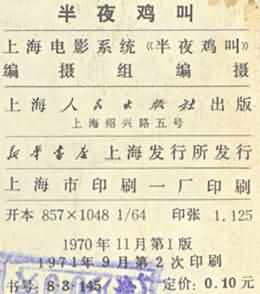 半夜鸡叫
上海电影系统《半夜鸡叫》
编摄组编摄
上海人民出版社出版
上海绍兴路五号
新华书店上海发行所发行
上海市印刷一厂印刷
开本 857×1048 1/64 印张 1.125
1970年11月第1版
1971年9月第2次印刷
书号：8·3·145 定价：0.10元